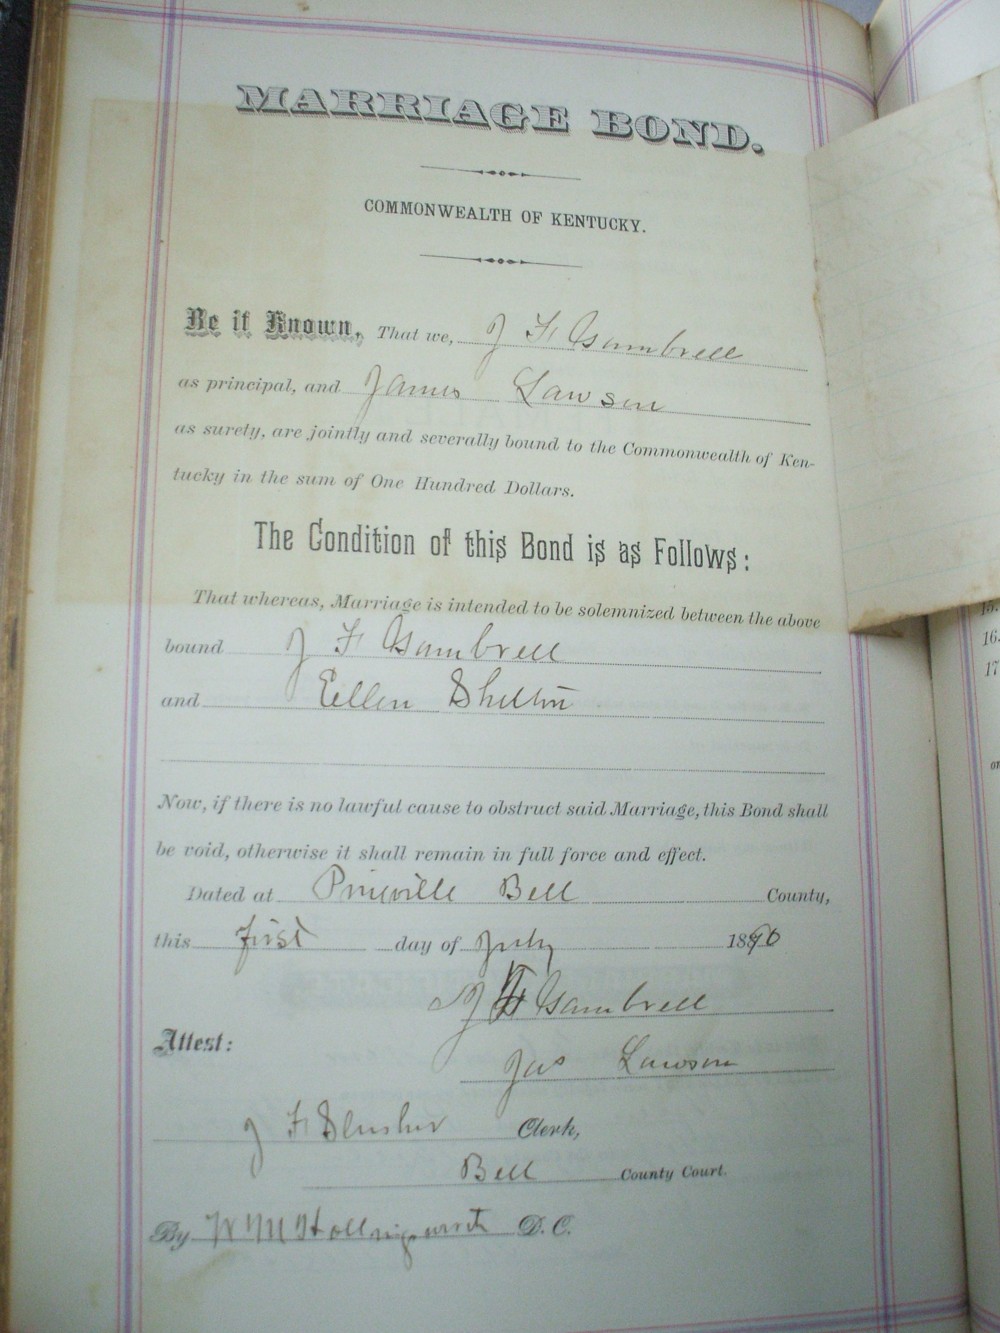 MARRIAGE BOND.
COMMONWEALTH OF KENTUCKY.
Be it Known, That we, J F Gambrell
as principal, and James Lawson
as surety, are jointly and severally bound to the Commonwealth of Ken-
tucky in the sum of One Hundred Dollars.
The Condition of this Bond is as Follows:
That whereas, Marriage is intended to be solemnized between the above
bound J F Gambrell
and Ellen Shelton
Now, if there is no lawful cause to obstruct said Marriage, this Bond shall
be void, otherwise it shall remain in full force and effect.
Dated at Pineville Bell County,
this first day of July 1890
J F Gambrell
Attest:
Jas Lawson
J F Slusher Clerk,
Bell County Court.
By W M Hollingsworth D. C.
15.
16.
17